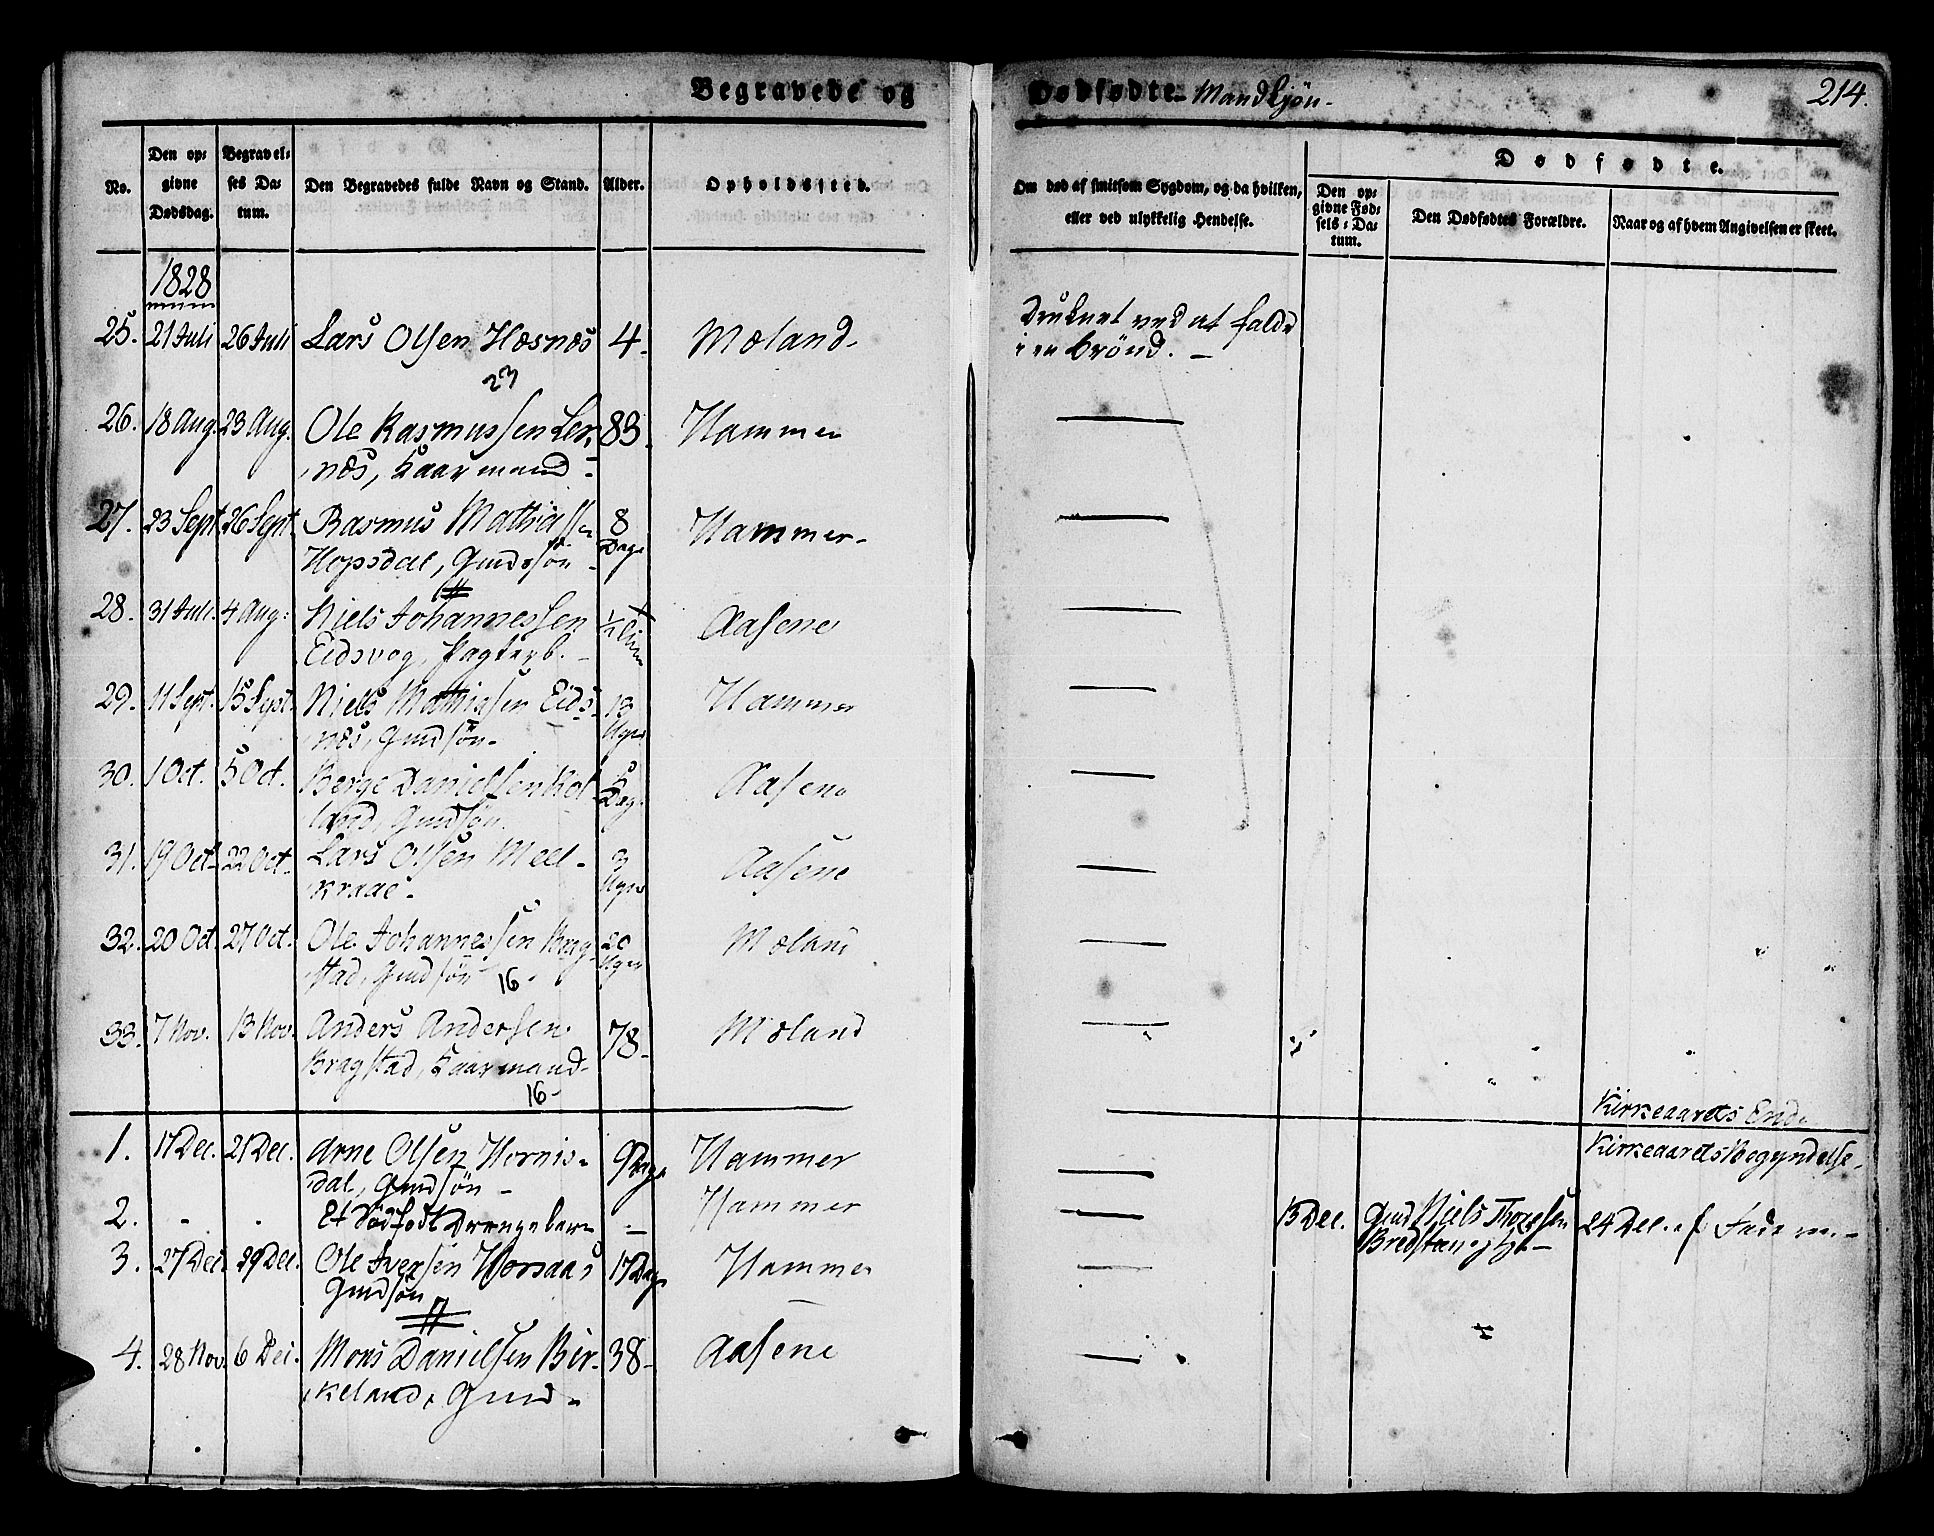 Begravede og Dødfødte. Mandkjøn.
214.
No.
Den opgivne Dødsdag.
Begravelses Datum.
Den Begravedes fulde Navn og Stand.
Alder.
Opholdssted.
Om død af smitsom Sygdom, og da hvilken,
eller ved ulykkelig Hendelse.
Dødfødte.
Den opgivne Fødsels-Datum.
Den Dødfødtes Forældre.
Naar og af hvem Angivelsen er skeet.
1828
25. 21 Juli 26 Juli Lars Olsen Hæsnæs 4. Mæland. Druknet ved at falde
i en brønd. –
23
26. 18 Aug. 23 Aug. Ole Rasmussen Ler- 83. Hammer —
næs, Kaarmand –
27. 23 Sept. 26 Sept. Rasmus Mathiassen 8 Hammer. —
Hopsdal, Gmdssøn Dage
28. 31 Juli. 4 Aug: Niels Johannessen ½ Aasene —
Eidsvog,
29. 11 Sept. 15 Sept. Niels Mathiasen Eids- 13 Hammer —
næs, Gmdsøn. Uger
30. 1 Oct. 5 Oct. Berge Danielsen Rol- 5 Aasene —
land, Gmdsøn. Dage
31. 19 Oct. 22 Oct. Lars Olsen Meel- 3 Aasene —
kraae. Uger
32. 20 Oct. 27 Oct. Ole Johannessen Brag- 20 Mæland —
stad, Gmdsøn 16. Uger
33. 7 Nov. 13 Nov. Anders Andersen 78. Mæland —
Bragstad, Kaarmand.
16.
Kirkeaarets Ende
Kirkeaarets Begyndelse.
1. 17 Dec. 21 Dec. Arne Olsen Hornis- 9 Dage Hammer —
dal, Gmdsøn –
2. . . Et dødfødt Drengebarn – Hammer — 15 Dec. Gmd Niels Thorsen 24 Dec. af Faderen. –
3. 27 Dec. 29 Dec. Ole Iversen Horsaas 17 Dage Hammer —
Gmdsøn
4. 28 Nov. 6 Dec. Mons Danielsen Bir- 38. Aasene —
keland, Gmd.